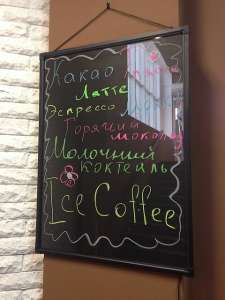 Какао
Латте
Эспрессо
Горячий
шоколад
Молочный
коктейль
Ice Coffee